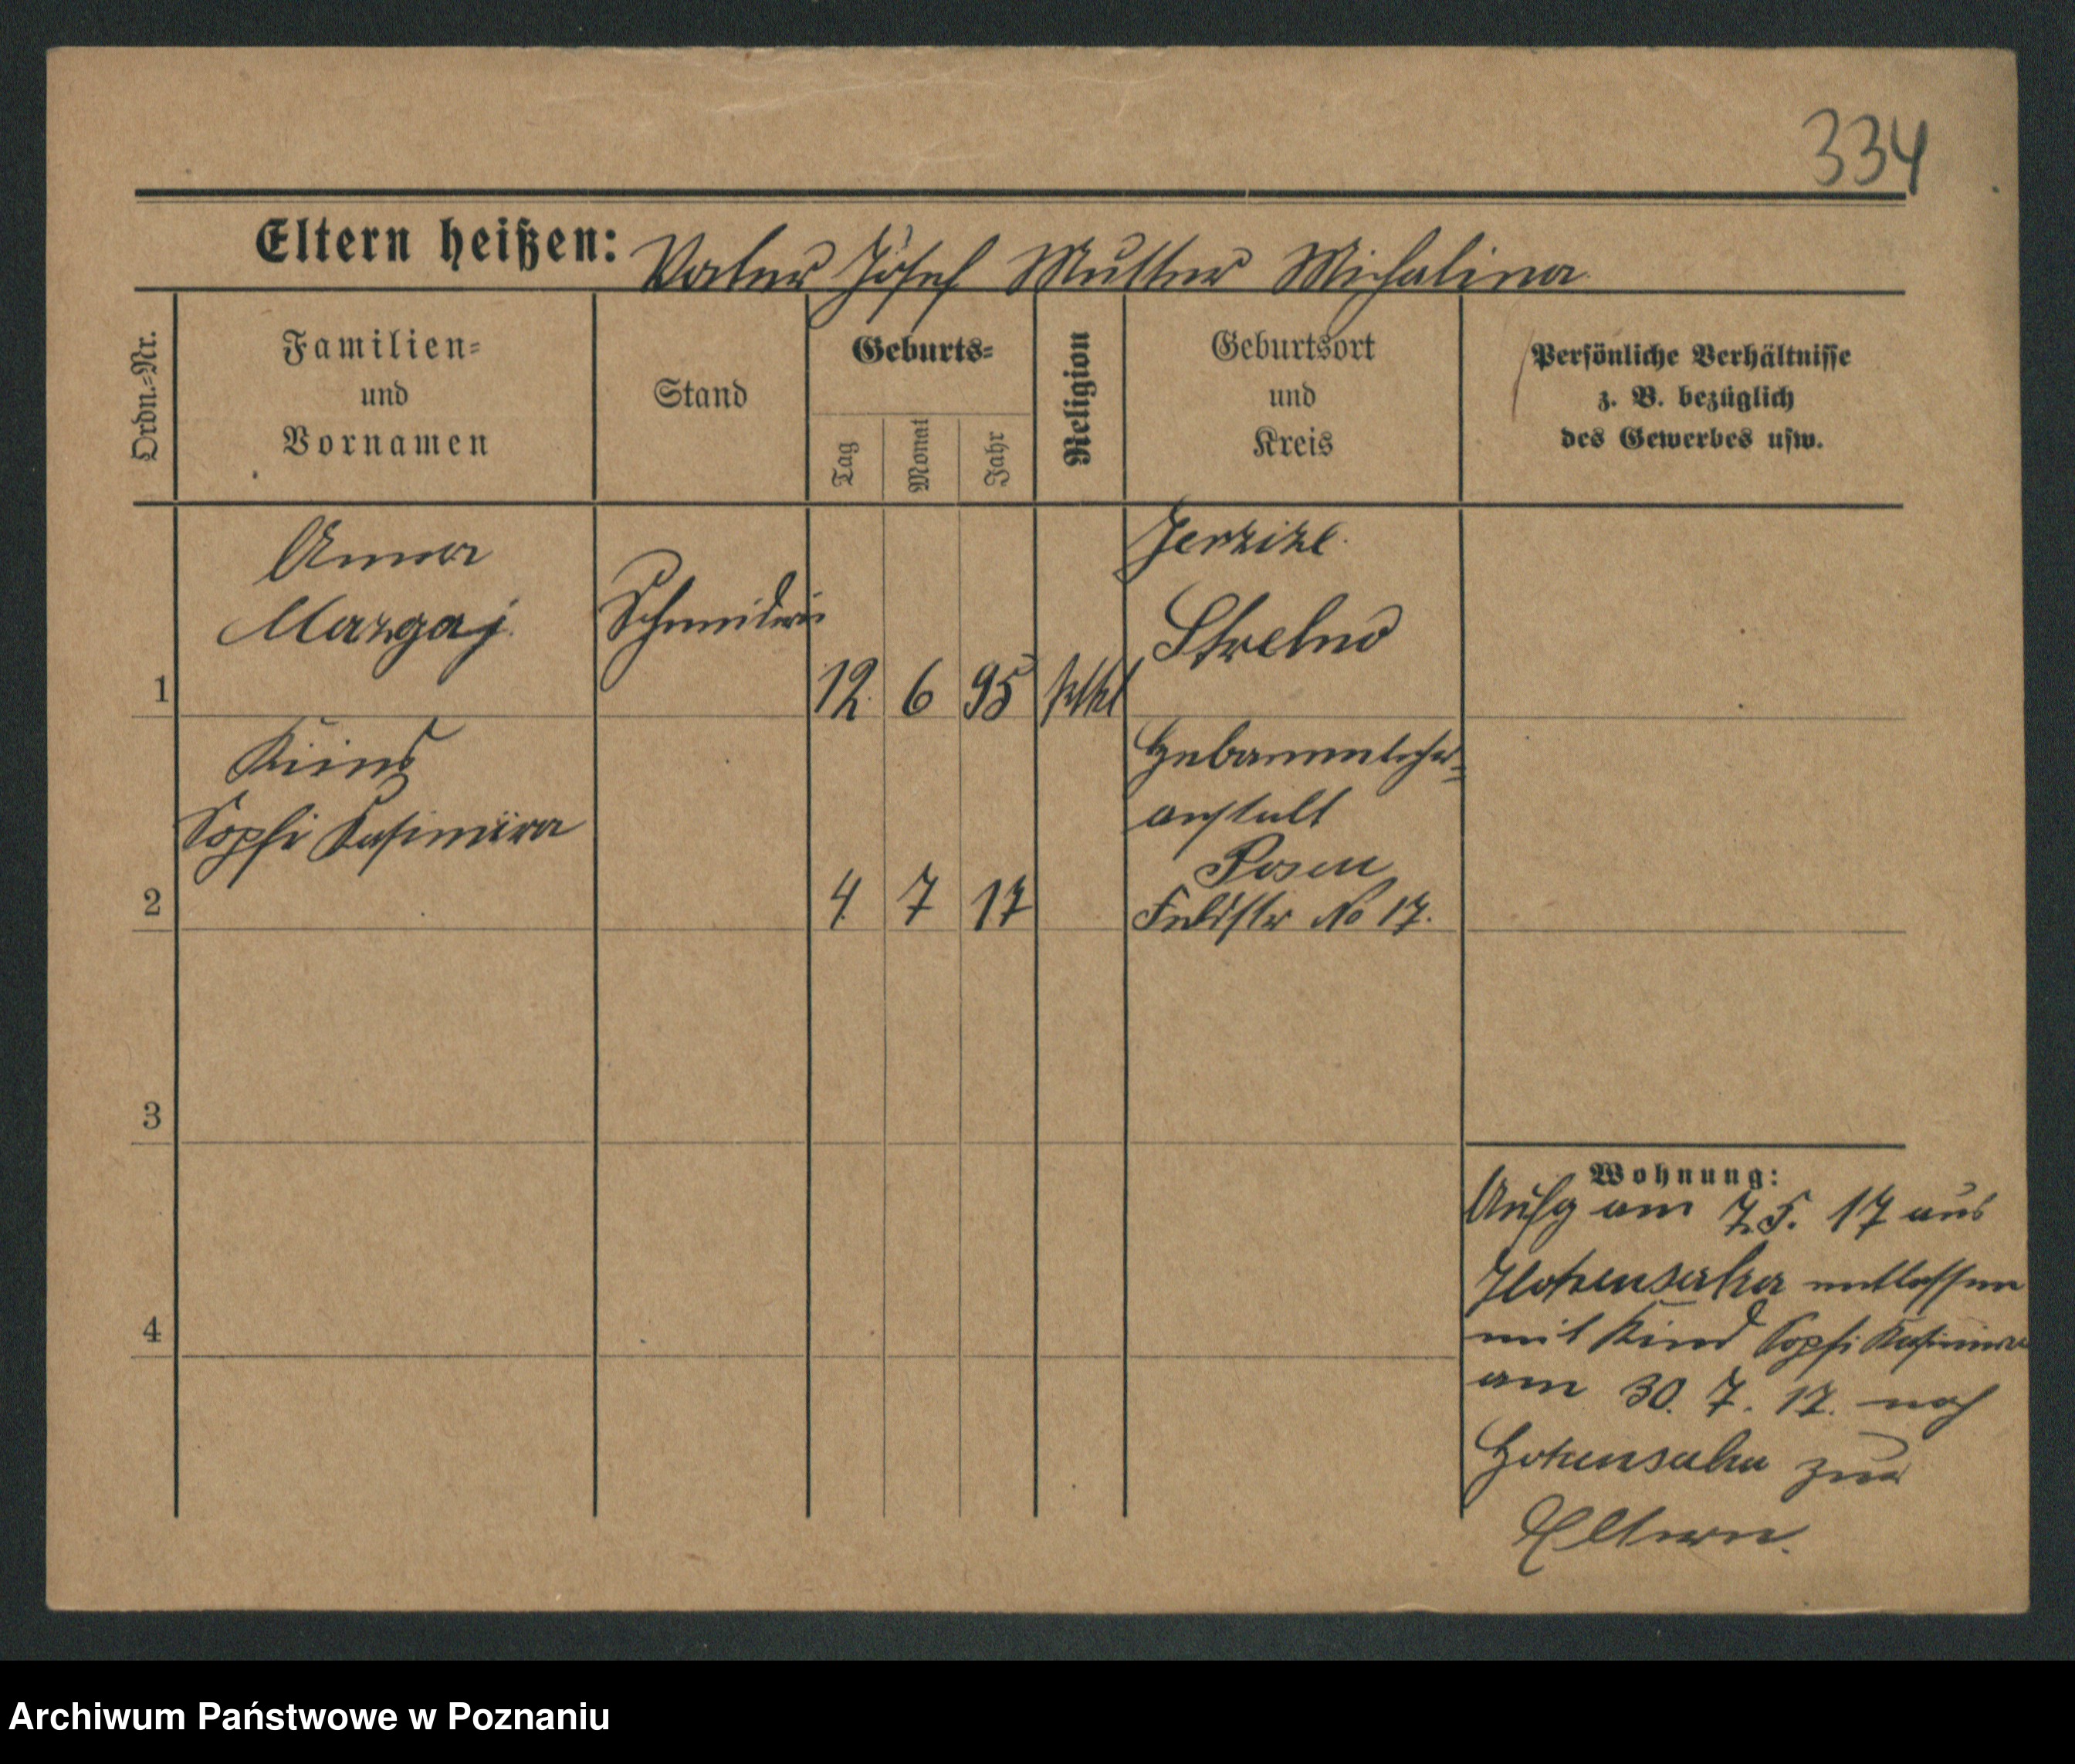 334
Eltern heißen: Vater Josef Mutter Michalina
Ordn.=Nr.
Familien=
und
Vornamen
Stand
Geburts=
Tag
Monat
Jahr
Religion
Geburtsort
und
Kreis
Persönliche Verhältnisse
z. B. bezüglich
des Gewerbes usw.
1
Anna
Mazgaj.
Schneiderin
12. 6 95 kth
Strelno
2
Kind
Sopfi Kasimira
4. 7 17
Hebammlehr=
anstalt
Posen
Feldstr No 17.
3
4
Wohnung:
Aufg am 7.5. 17 aus
Hohensalza entlassen
mit Kind Sopfi Kasimira
am 30. 7. 17. nach
Hohensalza zur
Eltern.
Archiwum Państwowe w Poznaniu